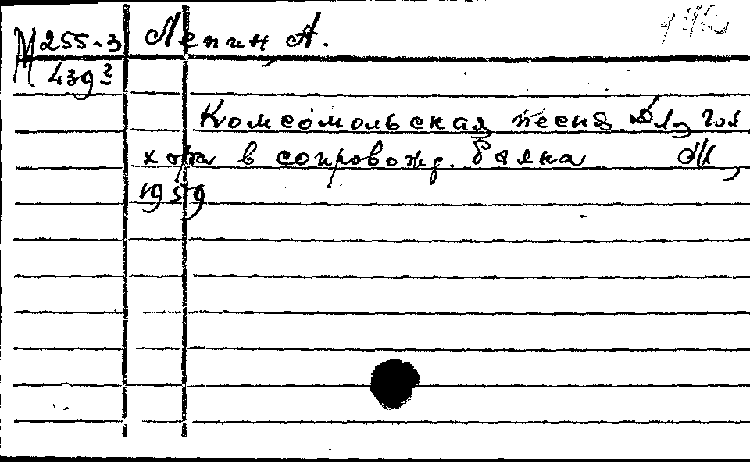 М 255-3 Лепин, А.
439
Комсомольская песня. Для 2ол.
хора в сопровожд. баяна М,
1959